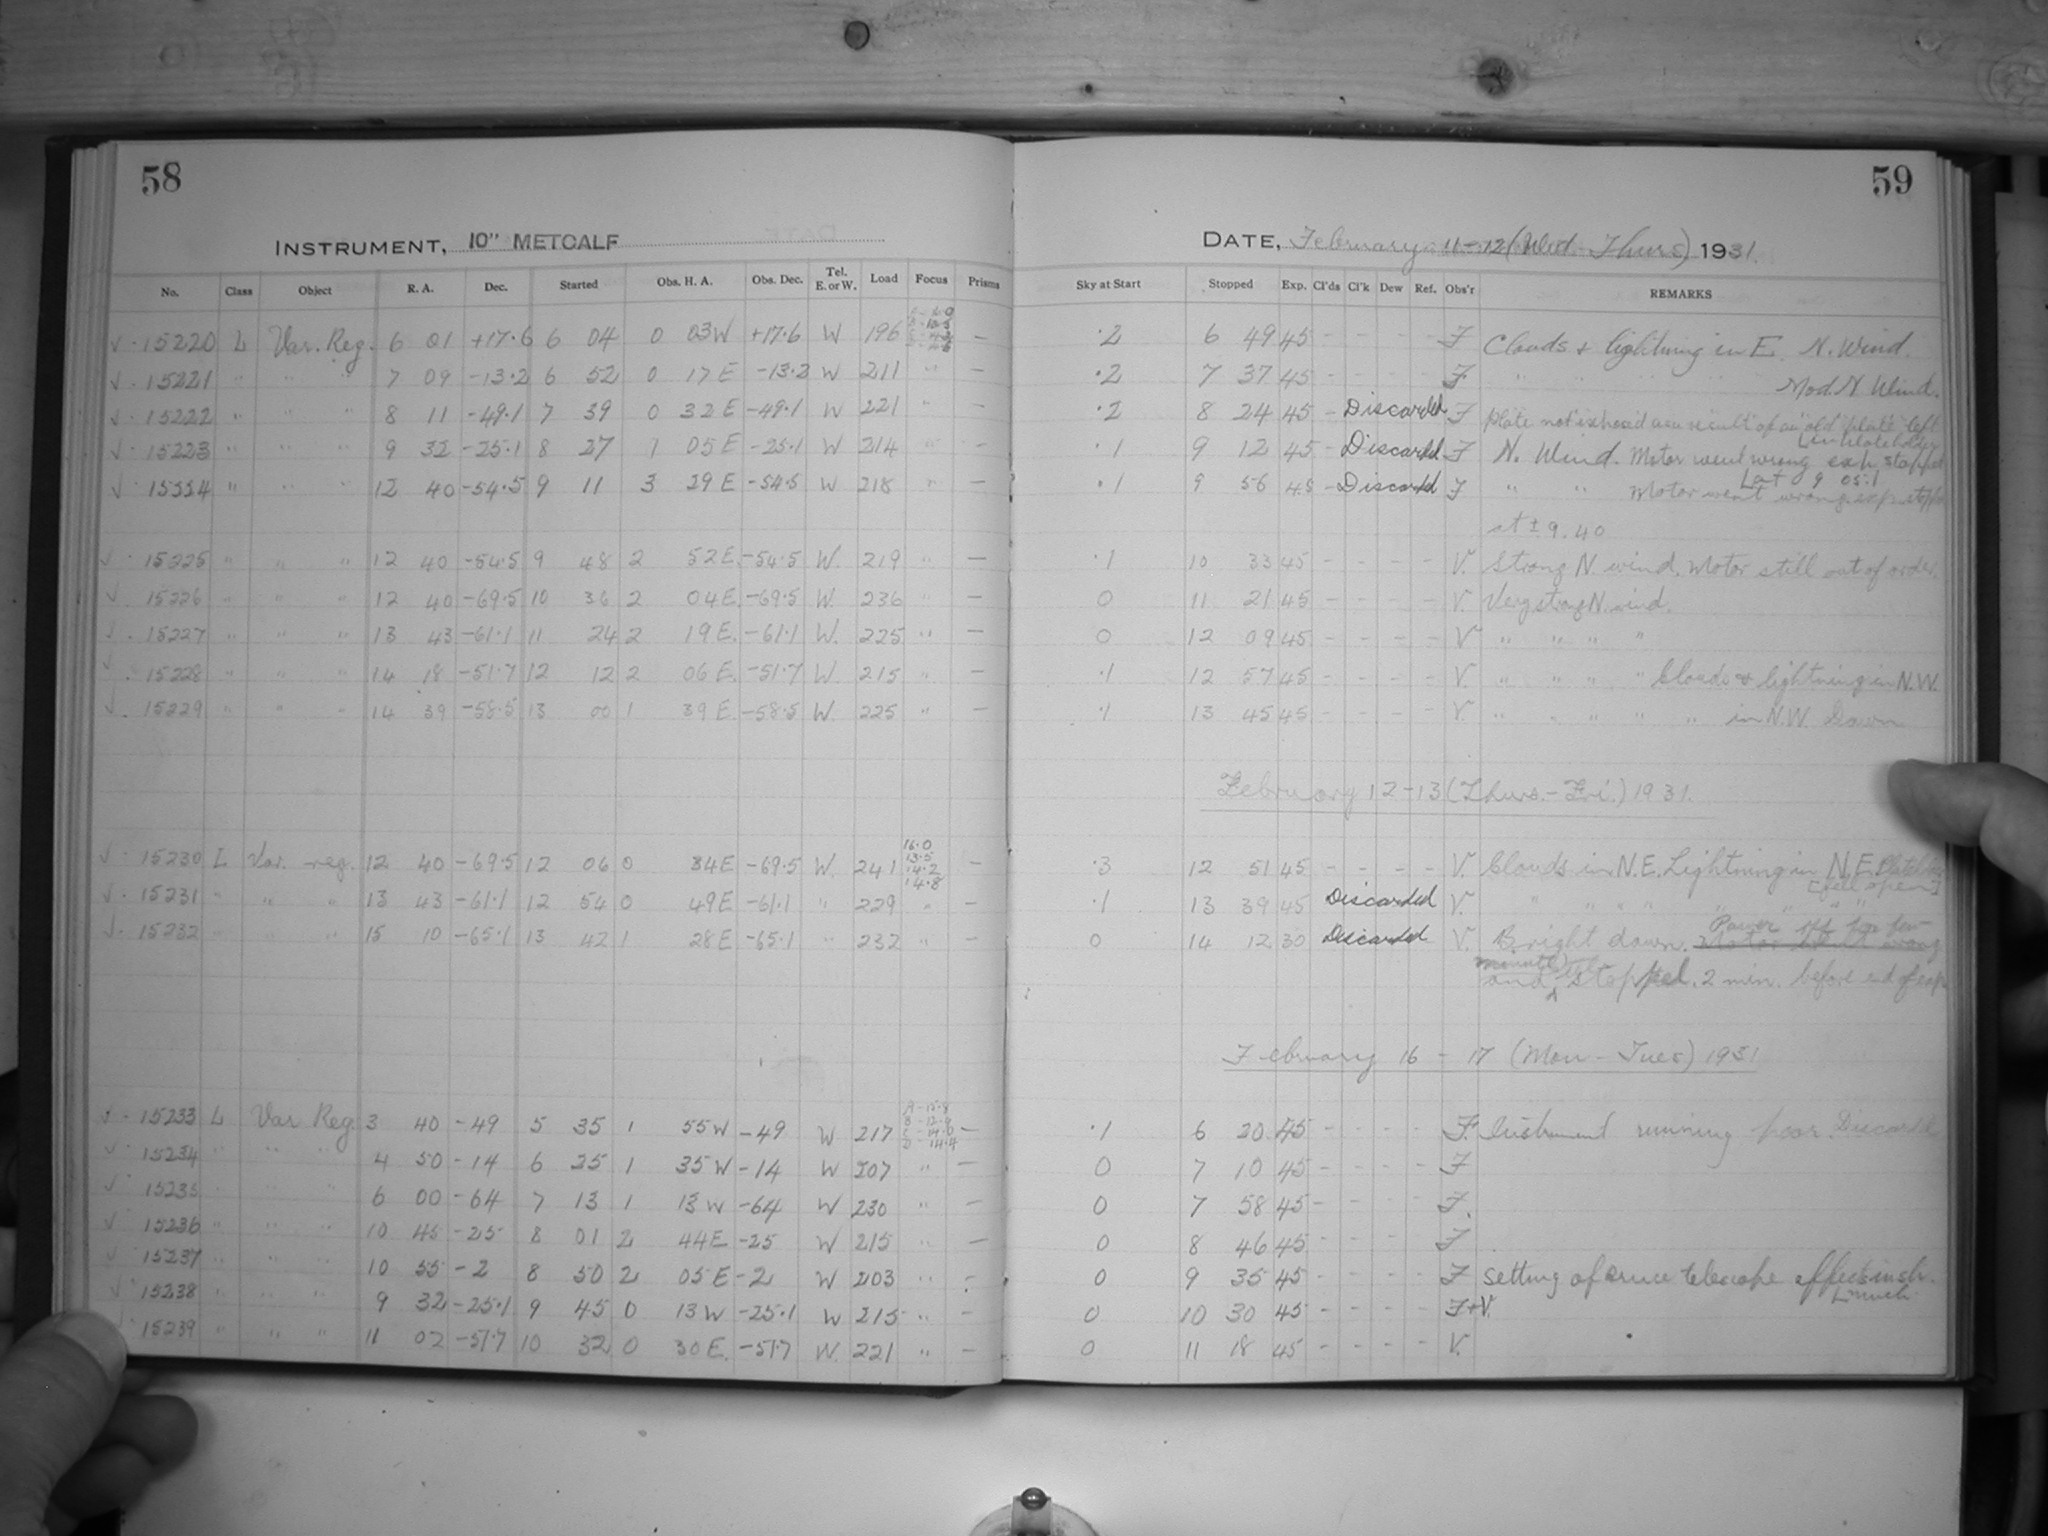 58
INSTRUMENT, 10" METCALF
No. Class Object R. A. Dec. Started Obs. H. A. Obs. Dec. Tel. E. or W. Load Focus Prisms
√ · 15220 L Var. Reg. 6 01 +17.6 6 04 0 03W +17.6 W 196 —
√ · 15221 " " " 7 09 -13.2 6 52 0 17 E -13.2 W 211 " —
√ · 15222 " " " 8 11 -49.1 7 39 0 32 E -49.1 W 221 " —
√ · 15223 " " " 9 32 -25.1 8 27 1 05 E -25.1 W 214 " —
√ · 15224 " " " 12 40 -54.5 9 11 3 29 E -54.5 W 218 " —
√ · 15225 " " " 12 40 -54.5 9 48 2 52E. -54.5 W. 219 " —
√ · 15226 " " " 12 40 -69.5 10 36 2 04E -69.5 W. 236 " —
√ · 15227 " " " 13 43 -61.1 11 24 2 19 E. -61.1 W. 225 " —
√ · 15228 " " " 14 18 -51.7 12 12 2 06 E. -51.7 W. 215 " —
√ · 15229 " " " 14 39 -58.5 13 00 1 39 E. -58.5 W. 225 " —
√ · 15230 L Var. reg. 12 40 -69.5 12 06 0 34E -69.5 W. 241 16.0 13.5 14.2 14.8 —
√ · 15231 " " " 13 43 -61.1 12 54 0 49E -61.1 " 229 " —
√ · 15232 " " " 15 10 -65.1 13 42 1 28E -65.1 " 232 " —
√ · 15233 L Var Reg. 3 40 -49 5 35 1 55W -49 W 217 —
√ 15234 " " " 4 50 -14 6 25 1 35W -14 W 207 " —
√ 15235 " " " 6 00 -64 7 13 1 13W -64 W 230 " —
√ 15236 " " " 10 45 -25 8 01 2 44E -25 W 215 " —
√ 15237 " " " 10 55 -2 8 50 2 05 E -2 W 203 " -
√ 15238 " " " 9 32 -25.1 9 45 0 13W -25.1 W 215 " —
15239 " " " 11 02 -51.7 10 32 0 30 E. -51.7 W. 221 " —
59
DATE, February 11-12 (Wed-Thurs) 1931.
Sky at Start Stopped Exp. Cl'ds Cl'k Dew Ref. Obs'r REMARKS
.2 6 49 45 - - - - F Clouds & lightning in E. N. Wind.
.2 7 37 45 - - - - F " " " " Mod. N Wind.
.2 8 24 45 - Discarded F Plate not exposed as a result of an old plate left
[in plateholder
.1 9 12 45 - Discarded F N. Wind. Motor went wrong exp. stopped
[at 9 05.1
.1 9 56 45 - Discarded F " " Motor went wrong exp. stopped
at ± 9.40
.1 10 33 45 - - - - V. Strong N. wind. Motor still out of order.
0 11 21 45 - - - - V. Very strong N. wind.
0 12 09 45 - - - - V " " " "
.1 12 57 45 - - - - V. " " " " Clouds & lightning in N.W.
.1 13 45 45 - - - - V. " " " " " in N.W. Dawn
February 12-13 (Thurs.-Fri.) 1931.
.3 12 51 45 - - - - V. Clouds in N.E. Lightning in N.E.
[fell open]
.1 13 39 45 Discarded V. " " " " " " " "
Power off for few
0 14 12 30 Discarded V. Bright dawn. Motor went wrong
minutes
and stopped. 2 min. before end of exp.
February 16 - 17 (Mon - Tues) 1931
.1 6 20 45 - - - - F. Instrument running poor. Discarded
0 7 10 45 - - - - F
0 7 58 45 - - - - F.
0 8 46 45 - - - - F
0 9 35 45 - - - - F setting of Bruce telescope affects inst.
[much
0 10 30 45 - - - - F+V.
0 11 18 45 - - - - V.